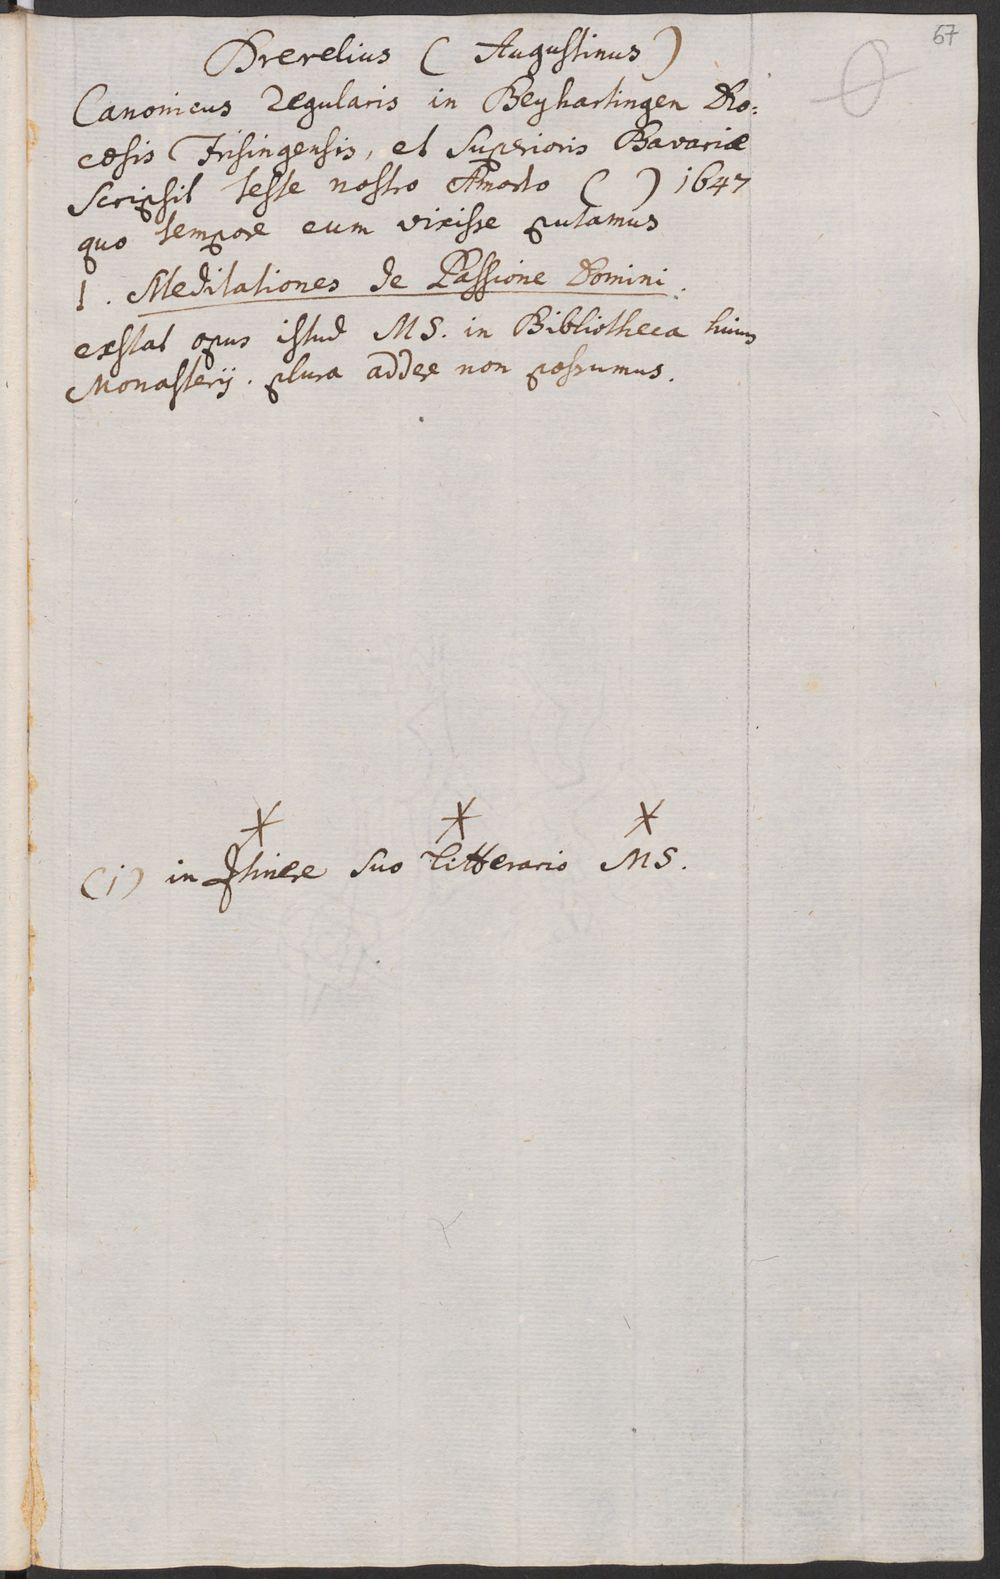 67
Brerelius ( Augustinus )
Canonicus Regularis in Beyhartingen Dio:
cesis Frisingensis, et Superioris Bavariæ
Scripsit teste nostro Amorto ( ) 1647
quo tempore eum vixisse putamus
1. Meditationes de Passione Domini.
exstat opus istud MS. in Bibliotheca huius
Monasterij. plura addere non possumus.
(i) in Itinere suo litterario MS.